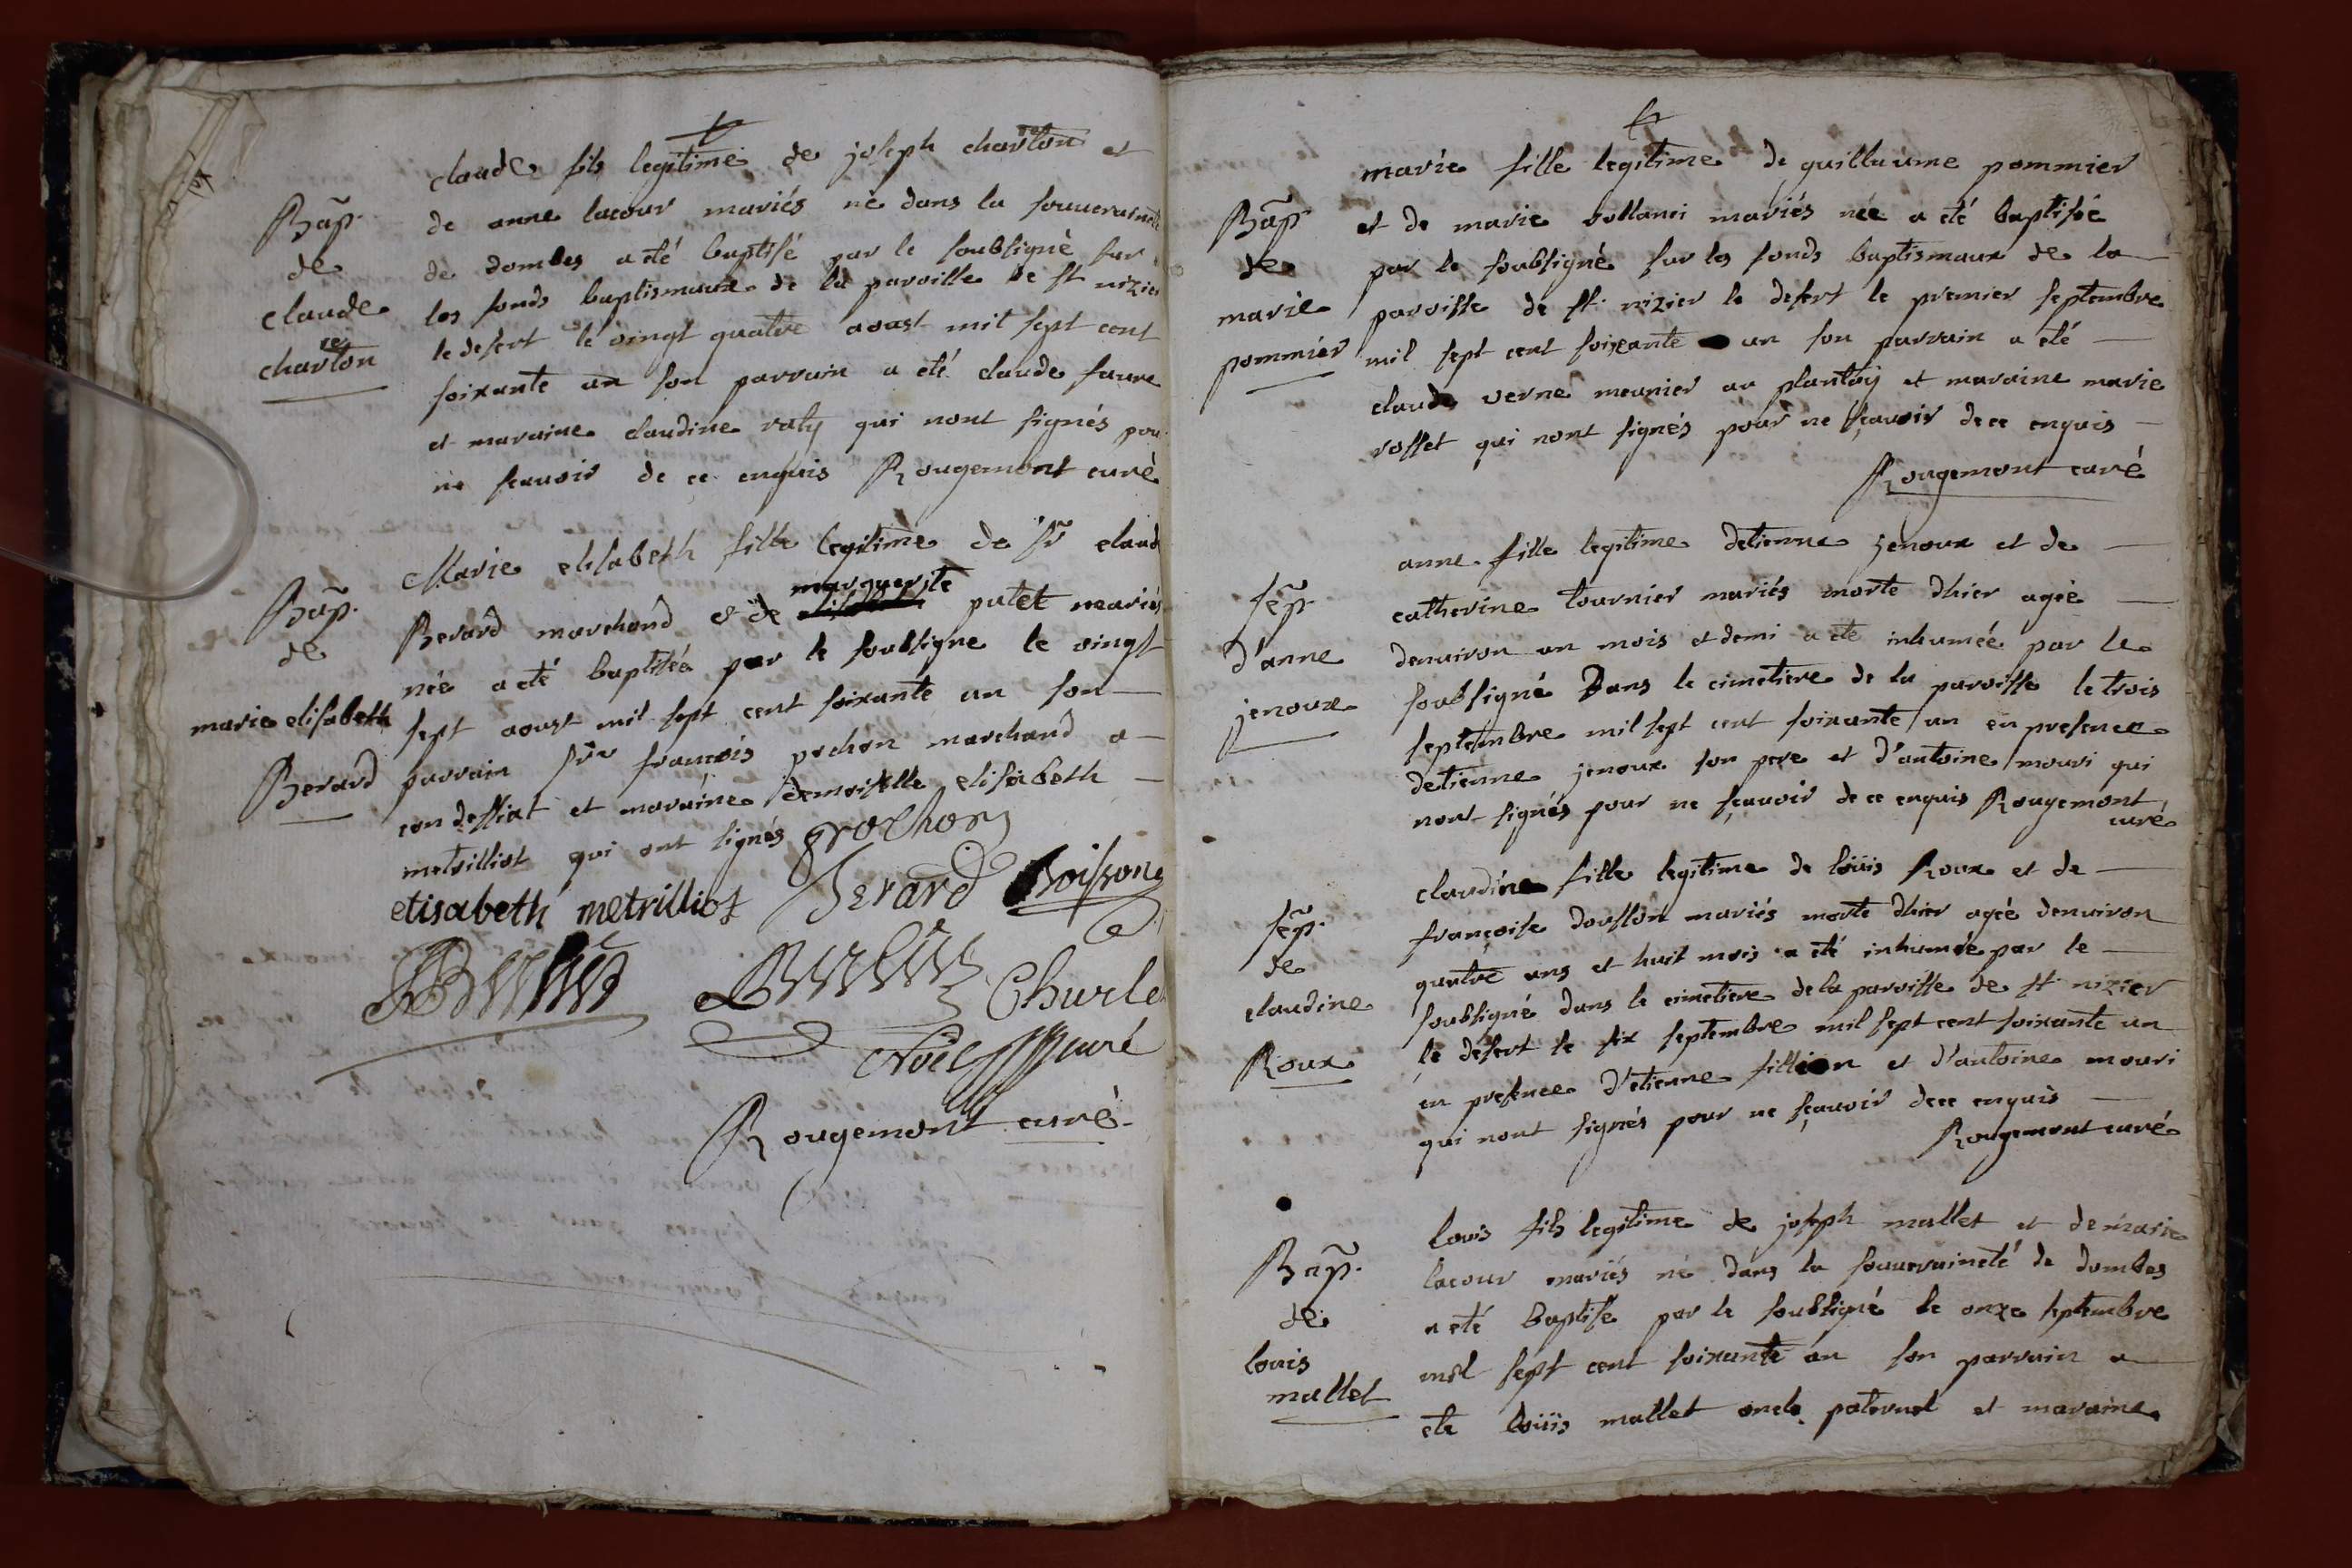 claude fils legitime de joseph charton et
Bap. de anne lacour mariés né dans la souveraineté
de de dombes a été baptisé par le soubsigné sur
claude les fonds baptismaux de la paroisse de st nizier
charton le desert le vingt quatre aoust mil sept cent
soixante un son parrain a été claude faure
et maraine claudine raty qui nont signés pour
ne scauoir de ce enquis Rougemont curé
Marie elisabeth fille legitime de sr claude
Bap. Berard marchand et de marguerite putet mariés
de née a été baptisée par le soubsigne le vingt
marie elisabeth sept aoust mil sept cent soixante un son
Berard parrain sr francois pochon marchand a
condessiat et maraine demoiselle elisabeth
metrilliot qui ont signés prochon
elisabeth metrilliot Berard Boisson
Churlet
Noel curé
Rougemont curé
marie fille legitime de guillaume pommier
Bap. et de marie vollanci mariés née a été baptisée
de par le soubsigné sur les fonds baptismaux de la
marie paroisse de st. nizier le desert le premier septembre
pommier mil sept cent soixante un son parrain a été
claude verne meunier au plantay et maraine marie
rosset qui nont signés pour ne sçauoir de ce enquis
Rougemont curé
anne fille legitime detienne jenoux et de
sep. catherine tournier mariés morte dhier agée
d'anne denuiron un mois et demi a été inhumée par le
jenoux soubsigné Dans le cimetiere de la paroisse le trois
septembre mil sept cent soixante un en presence
detienne jenoux son pere et d'antoine mouri qui
nont signés pour ne sçauoir de ce enquis Rougemont
curé
claudine fille legitime de loüis Roux et de
sep. françoise doufflon mariés morte dhier agée denuiron
de quatre ans et huit mois a été inhumée par le
claudine soubsigné dans le cimetiere de la paroisse de st nizier
Roux le désert le six septembre mil sept cent soixante un
en presence d'etienne fillion et d'antoine mouri
qui nont signés pour ne sçauoir de ce enquis
Rougemont curé
louis fils legitime de joseph mallet et de marie
Bap. lacour mariés né dans la souueraineté de dombes
de a été baptise par le soubsigné le onze septembre
louis mil sept cent soixante un son parrain a
mallet ete loüis mallet oncle paternel et maraine